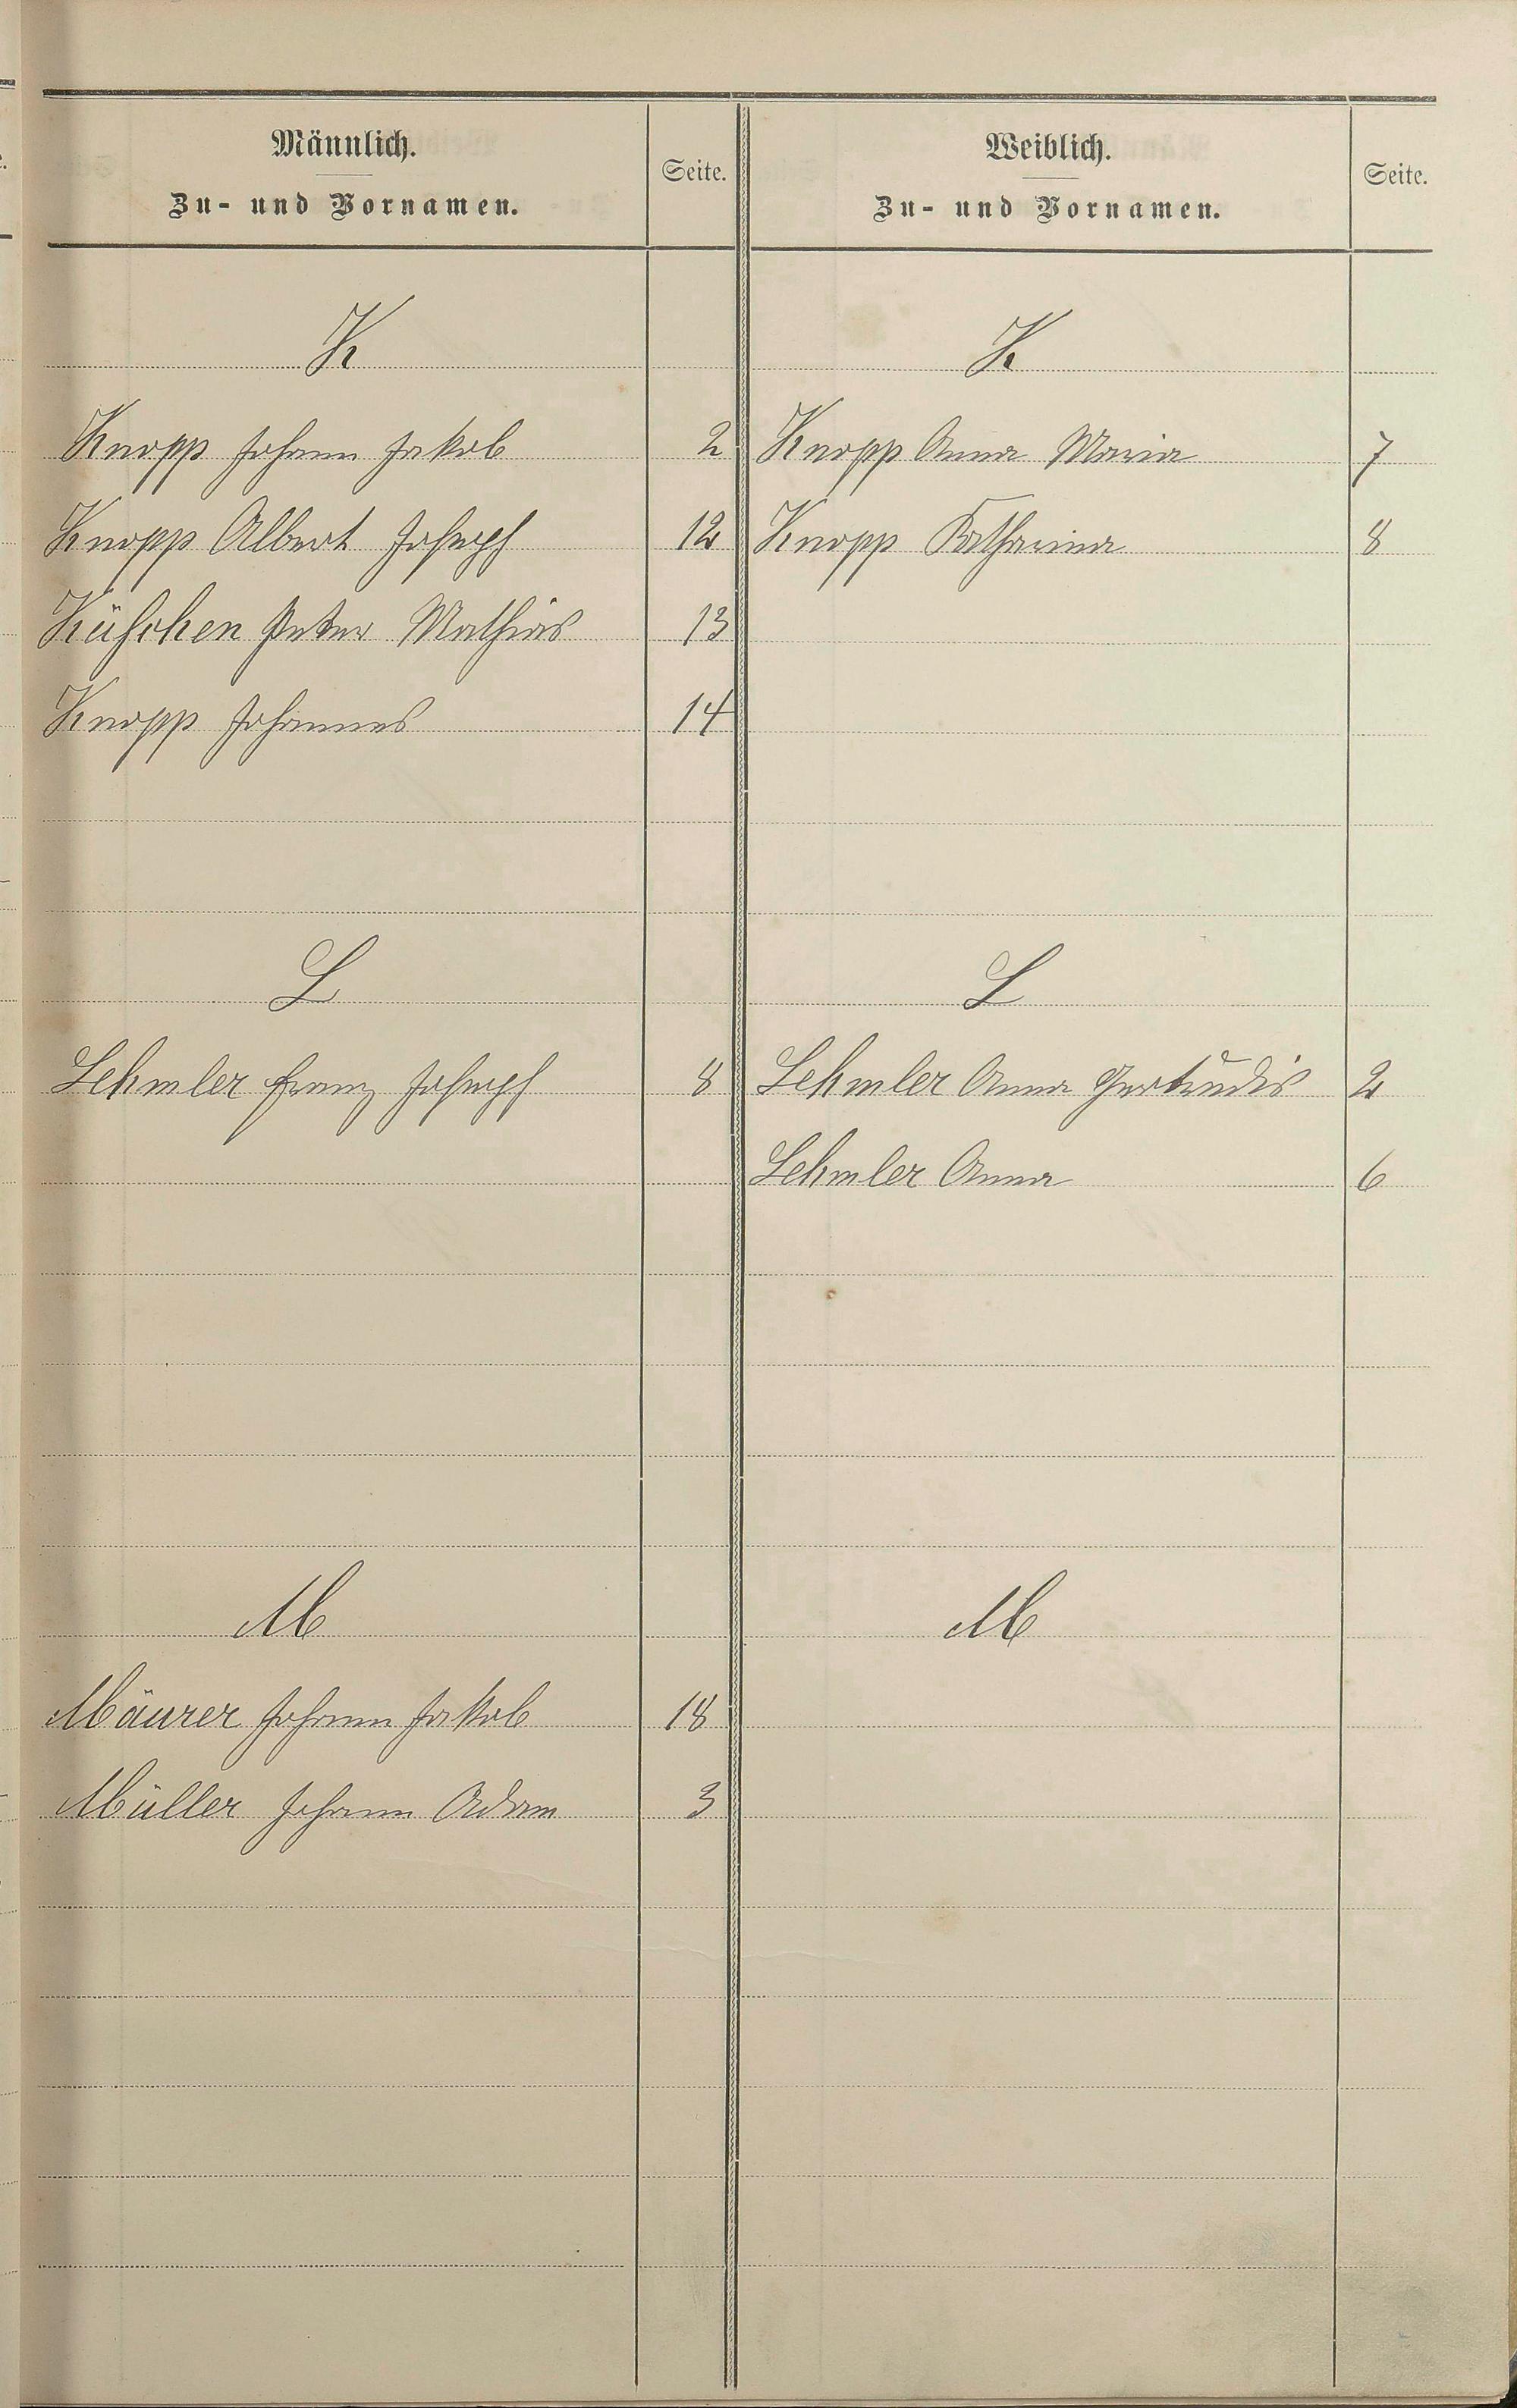 Männlich.
Zu- und Vornamen.
Seite.
Weiblich.
Zu- und Vornamen.
Seite.
K
K
Knopp Johann Jakob 2
Knopp Anna Maria 7
Knopp Albert Joseph 12
Knopp Katharina 8
Peter Mathias 13
Knopp Johannes 14
L
L
Lehmler Franz Joseph 8
Lehmler Anna Gertrudis 2
Lehmler Anna 6
M
M
Mäurer Johann Jakob 18
Müller Johann Adam 3